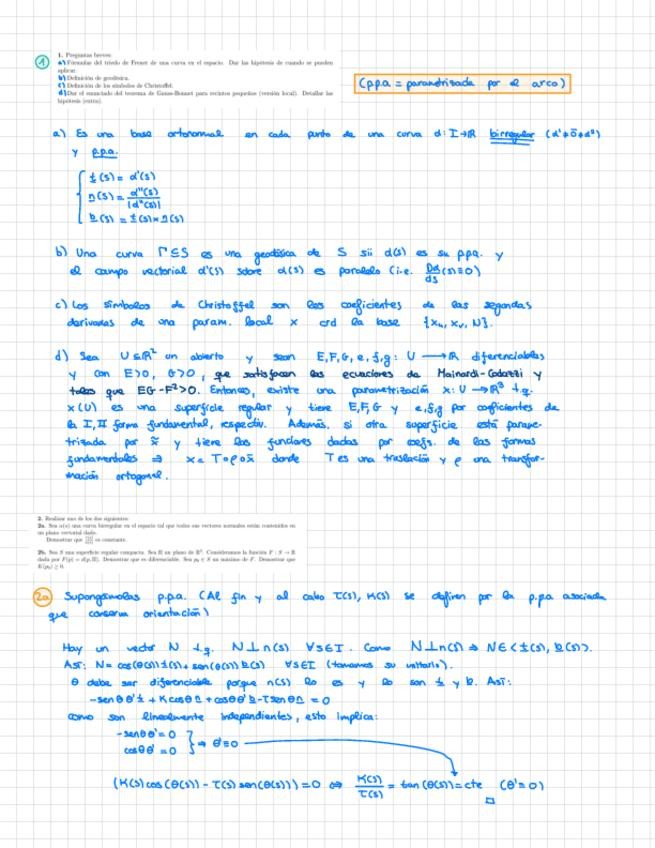 1
1. Preguntas breves:
a) Fórmulas del triedro de Frenet de una curva en el espacio. Dar las hipótesis de cuando se pueden
aplicar.
b) Definición de geodésica.
c) Definición de los símbolos de Christoffel.
d) Dar el enunciado del teorema de Gauss-Bonnet para recintos pequeños (versión local). Detallar las
hipótesis (entra).
(p.p.a = parametrizada por el arco)
a) Es una base ortonormal en cada punto de una curva α: I→R birregular (α'≠0≠α'')
y p.p.a.
t(s) = α'(s)
n(s) = α''(s)/|α''(s)|
b(s) = t(s)×n(s)
b) Una curva Γ⊆S es una geodésica de S sii α(s) es su p.p.a. y
el campo vectorial α'(s) sobre α(s) es paralelo (i.e. Dα'/ds (s)≡0)
c) Los símbolos de Christoffel son los coeficientes de las segundas
derivadas de una param. local x crd la base {xu, xv, N}.
d) Sea U⊆R² un abierto y sean E,F,G,e,f,g: U → R diferenciables
y con E>0, G>0, que satisfacen las ecuaciones de Mainardi-Codazzi y
tales que EG-F²>0. Entonces, existe una parametrización x: U → R³ t.q.
x(U) es una superficie regular y tiene E,F,G y e,f,g por coeficientes de
la I, II forma fundamental, respectiv. Además, si otra superficie está parame-
trizada por x̃ y tiene las funciones dadas por coefs. de las formas
fundamentales ⇒ x = T∘ρ∘x̃ donde T es una traslación y ρ una transfor-
mación ortogonal.
2. Realizar uno de los dos siguientes:
2a. Sea α(s) una curva birregular en el espacio tal que todos sus vectores normales están contenidos en
un plano vectorial dado.
Demostrar que es constante.
2b. Sea S una superficie regular compacta. Sea Π un plano de R³. Consideramos la función F : S → R
dada por F(p) = d(p, Π). Demostrar que es diferenciable. Sea p₀ ∈ S un máximo de F. Demostrar que
K(p₀) ≥ 0.
2a Supongámoslas p.p.a. (Al fin y al cabo τ(s), K(s) se definen por la p.p.a asociada
que conserva orientación)
Hay un vector N t.q. N⊥n(s) ∀s∈I. Como N⊥n(s) ⇒ N∈<t(s), b(s)>.
Así: N = cos(θ(s))t(s)+sen(θ(s))b(s) ∀s∈I (tomamos su unitario).
θ debe ser diferenciable porque n(s) lo es y lo son t y b. Así:
-senθ θ' t + K cosθ n + cosθ θ' b - τ senθ n = 0
como son linealmente independientes, esto implica:
-senθ θ' = 0
cosθ θ' = 0 ⇒ θ'≡0
(K(s)cos(θ(s)) - τ(s) sen(θ(s))) = 0 ⇔ K(s)/τ(s) = tan(θ(s)) = cte (θ'=0)
□